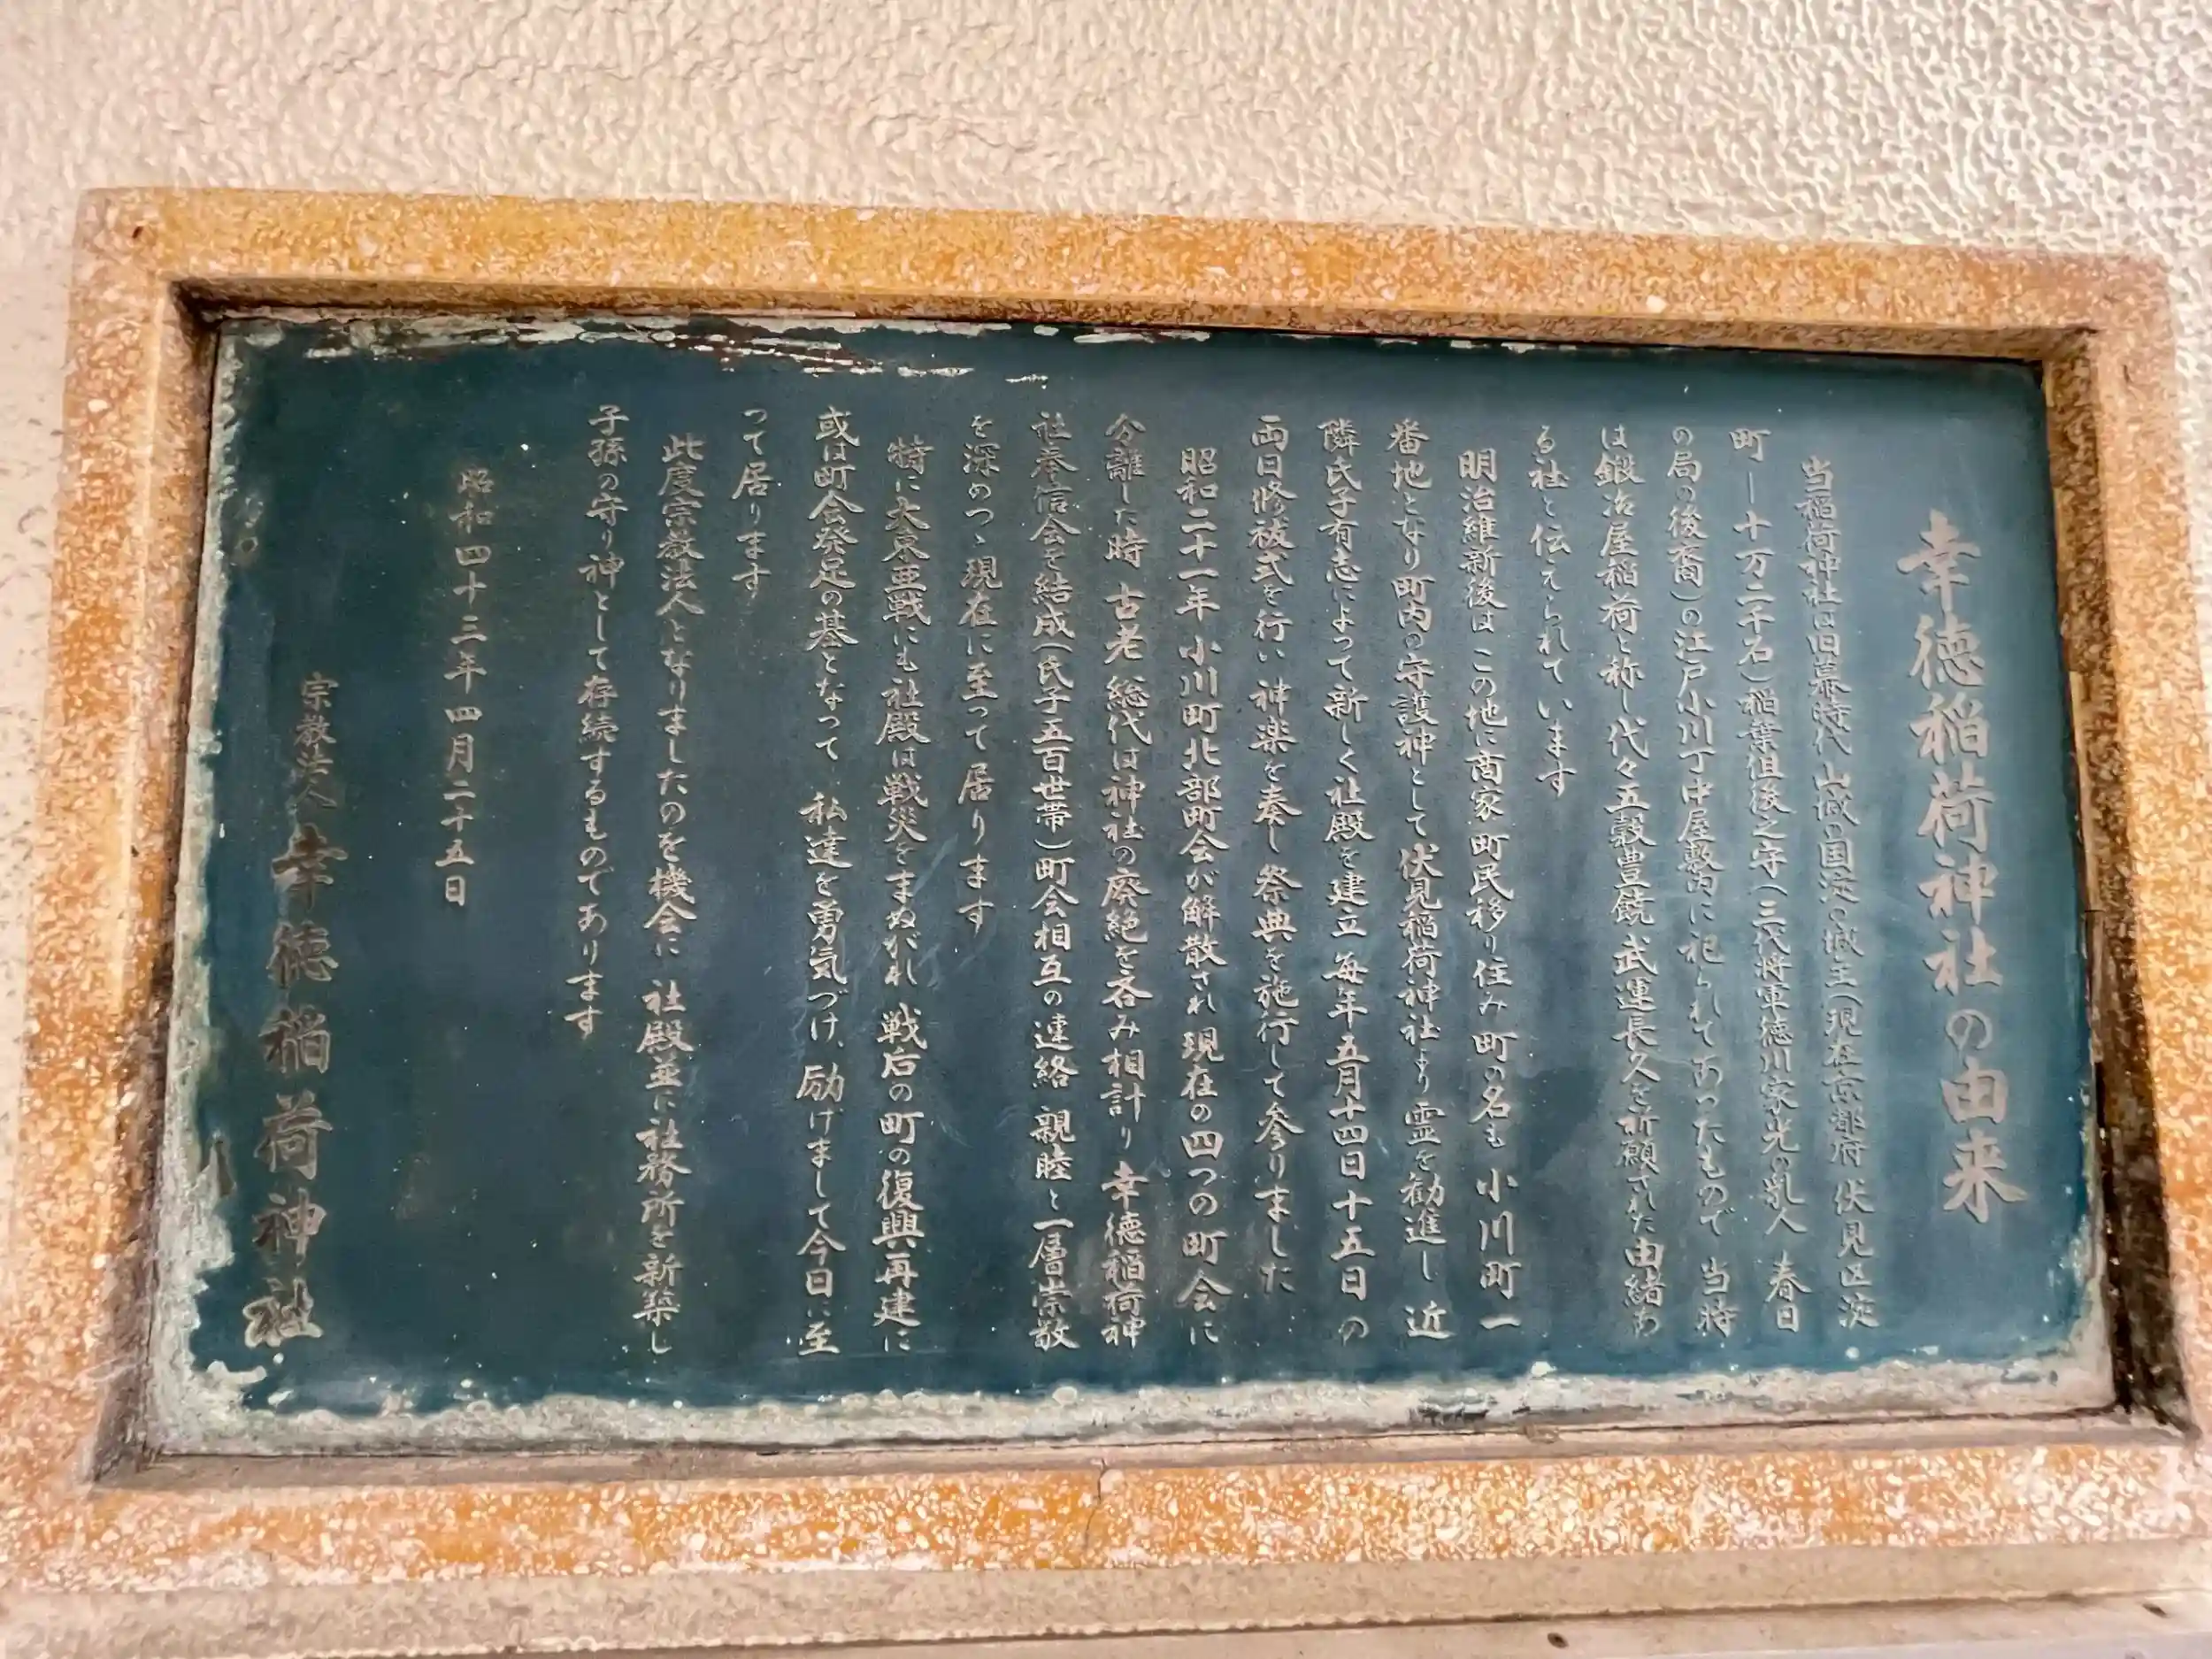 幸徳稲荷神社の由来
当稲荷神社は旧幕時代 山城の国淀の城主(現在京都府 伏見区淀
町―十万二千石)稲葉但後之守(三代将軍徳川家光の乳人 春日
の局の後裔)の江戸小川丁中屋敷内に祀られてあったもので 当時
は鍛冶屋稲荷と称し代々五穀豊饒武運長久を祈願された由緒あ
る社と伝えられています
明治維新後は この地に商家町民移り住み 町の名も 小川町一
番地となり町内の守護神として伏見稲荷神社より霊を勧進し 近
隣氏子有志によって新しく社殿を建立 毎年五月十四日十五日の
両日修祓式を行い 神楽を奏し 祭典を施行して参りました
昭和二十一年 小川町北部町会が解散され 現在の四つの町会に
分離した時 古老 総代は神社の廃絶を吝み相計り 幸徳稲荷神
社奉信会を結成(氏子五百世帯)町会相互の連絡 親睦と一層崇敬
を深めつゝ現在に至って居ります
特に大東亜戦にも社殿は戦災をまぬがれ 戦后の町の復興再建に
或は町会発足の基となって 私達を勇気づけ、励げまして今日に至
って居ります
此度宗教法人となりましたのを機会に 社殿並に社務所を新築し
子孫の守り神として存続するものであります
昭和四十三年四月二十五日
宗教法人 幸徳稲荷神社